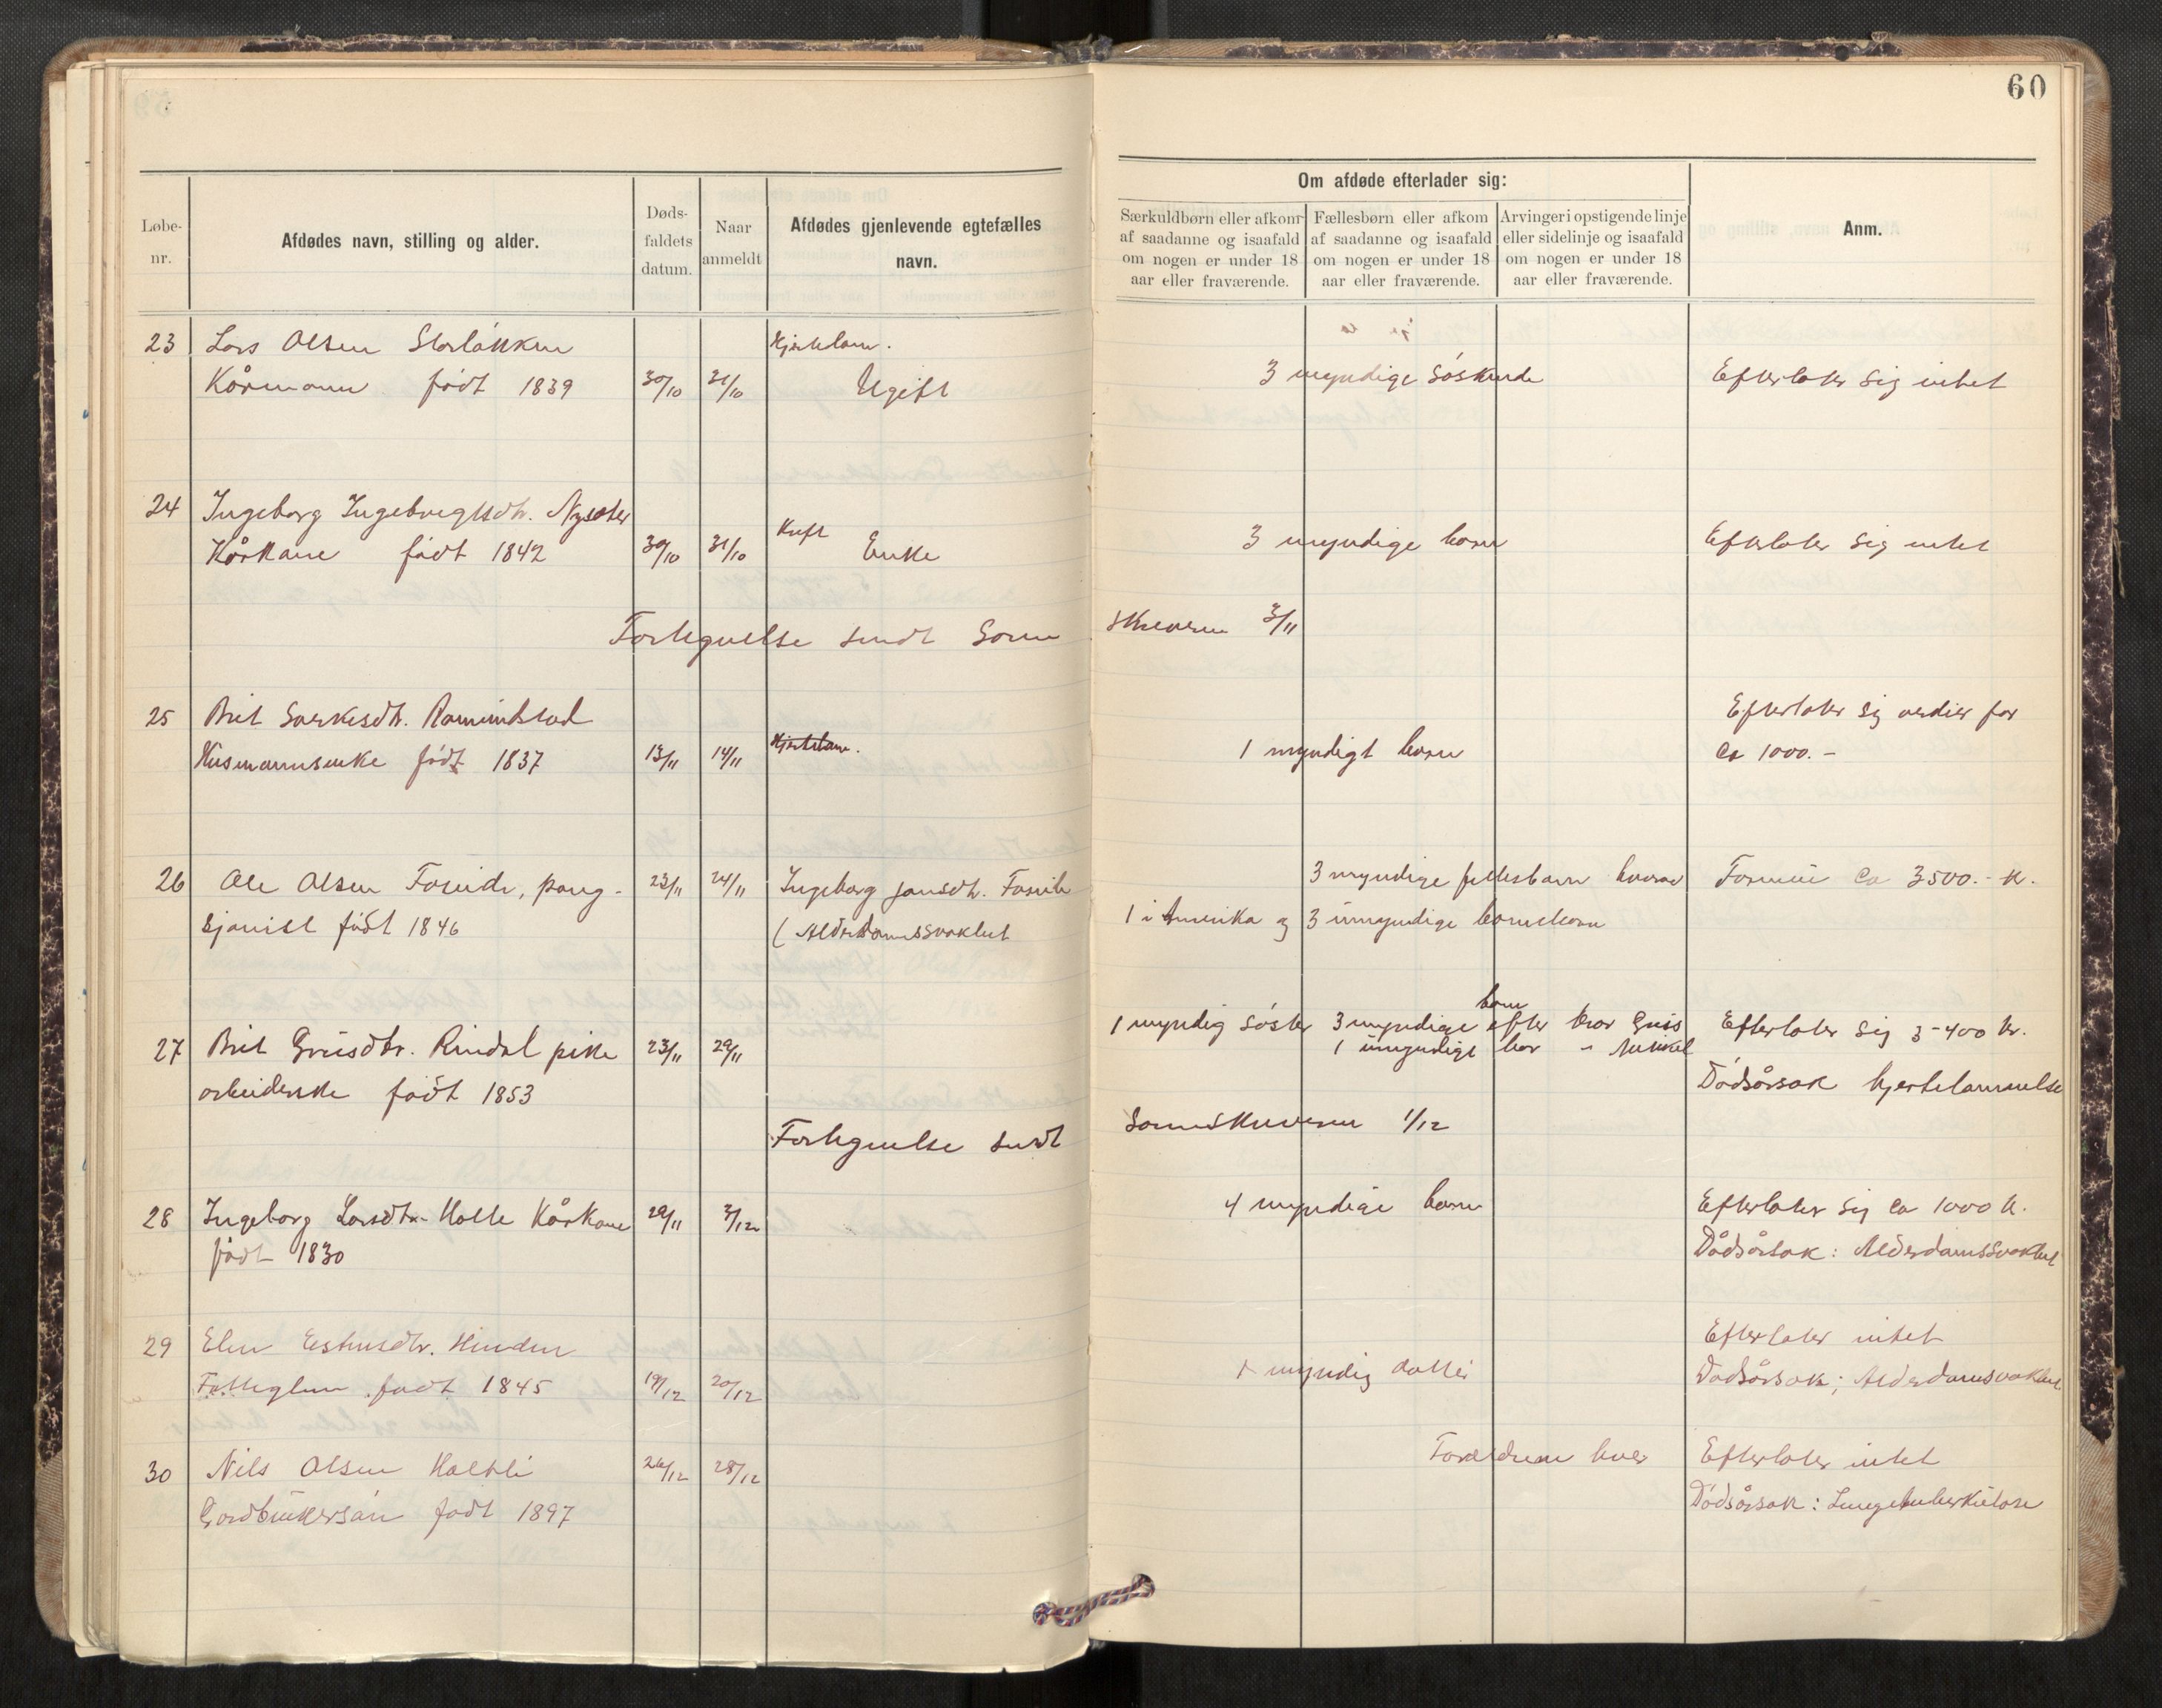 60
Løbe-
nr.
Afdødes navn, stilling og alder.
Døds-
faldets
datum.
Naar
anmeldt
Afdødes gjenlevende egtefælles
navn.
Om afdøde efterlader sig:
Særkuldbørn eller afkom
af saadanne og isaafald
om nogen er under 18
aar eller fraværende.
Fællesbørn eller afkom
af saadanne og isaafald
om nogen er under 18
aar eller fraværende.
Arvinger i opstigende linje
eller sidelinje og isaafald
om nogen er under 18
aar eller fraværende.
Anm.
23 Lars Olsen Storløkken Hjertelam.
Kårmann født 1839 30/10 31/10 Ugift 3 myndige søskende Efterlater sig intet
24 Ingeborg Ingebregtsdtr. Nyseter Kreft
Kårkane født 1842 30/10 31/10 Enke 3 myndige barn Efterlater sig intet
Fortegnelse sendt Soren skriveren 3/11
25 Brit Romundstad Efterlater sig verdier for
Husmannsenke født 1837 13/11 14/11 Hjertelam. 1 myndigt barn ca 1000.-
26 Ole Olsen pang- 23/11 24/11 Ingeborg Jonsdtr. 3 myndige fellesbarn hvorav Formue ca 3500.- kr.
sjonist født 1846 (Alderdomssvakhet 1 i Amerika og 3 umyndige barnebarn
barn
27 Brit Guisdtr. Rindal pike 23/11 29/11 1 myndig søster 3 myndige efter bror Guis Efterlater sig 3-400 kr.
1 umyndige bar - Mikkel
arbeiderske født 1853 Dødsårsak hjertelammelse
Fortegnelse sendt Sorenskriveren 1/12
28 Ingeborg Larsdtr. Holte Kårkone 29/11 3/12 4 myndige barn Efterlater sig ca 1000 kr.
født 1830 Dødsårsak: Alderdomssvakhet
29 Elen Estensdtr. Efterlater intet
Fattiglem født 1845 19/12 20/12 1 myndig datter Dødsårsak; Alderdomsvakhet
30 Nils Olsen Holtli 26/12 28/12 Forældrene lever Efterlater intet
Gårdbrukersøn født 1897 Dødsårsak: Lungetuberkulose